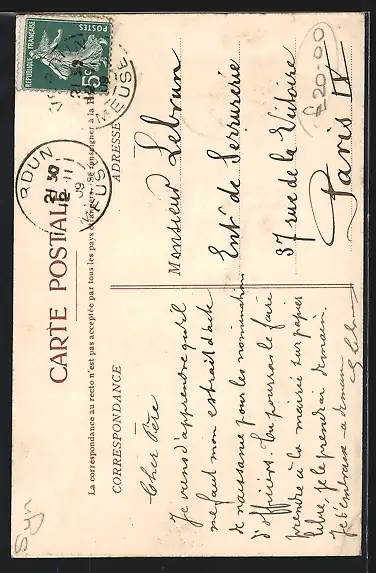 CARTE POSTALE
La correspondance au recto n'est pas acceptée par tous les pays étrangers. Se renseigner à la
CORRESPONDANCE
ADRESSE
Cher Père
Je viens d'apprendre qu'il
me faut mon extrait d'acte
de naissance pour les nominations
d'officiers. Tu pourras le faire
prendre à la mairie sur papier
libre, je le prendrai demain.
Je t'embrasse - a demain
Monsieur Lebrun
Entr. de Serrurerie
37 rue de la Victoire
Paris IX
RÉPUBLIQUE FRANÇAISE
POSTES
5c
MEUSE
21 30
12 - 11
09
20-00